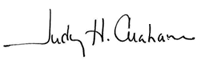 Judy H. Graham